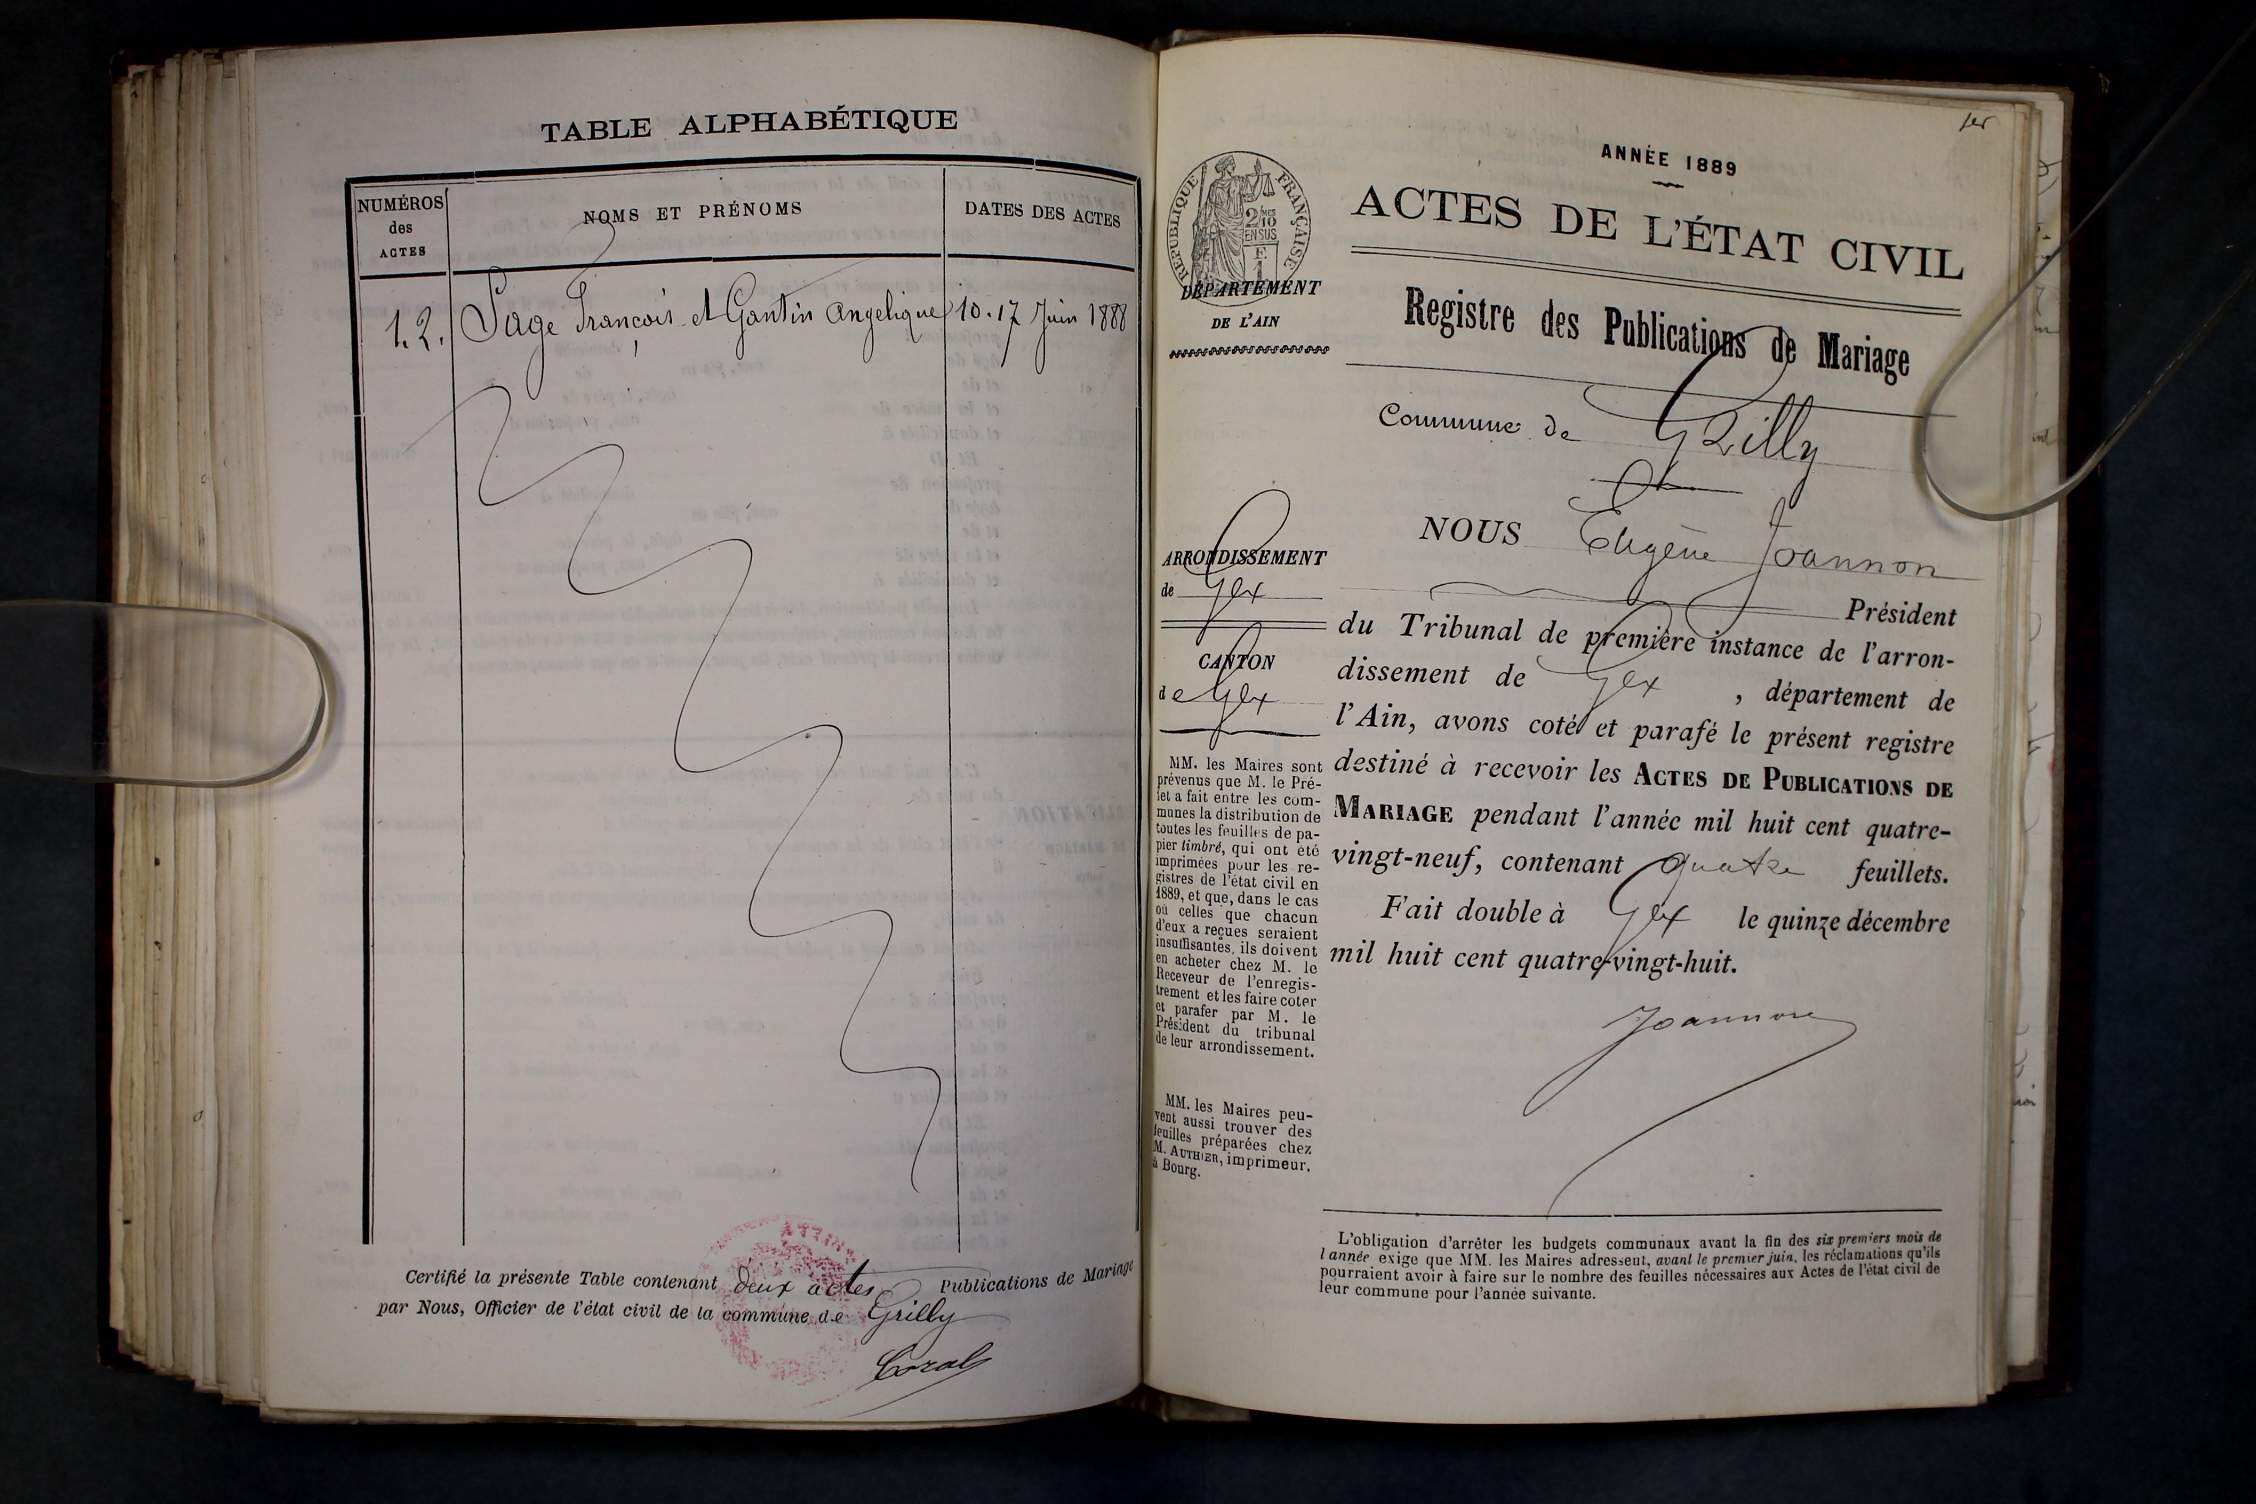 TABLE ALPHABÉTIQUE
NUMÉROS
des
ACTES
NOMS ET PRÉNOMS
DATES DES ACTES
1. 2.
Sage François et Gantin Angelique
10. 17 Juin 1888
Certifié la présente Table contenant deux actes Publications de Mariage
par Nous, Officier de l'état civil de la commune de Grilly
1er
ANNÉE 1889
ACTES DE L'ÉTAT CIVIL
Registre des Publications de Mariage
RÉPUBLIQUE FRANÇAISE
2 MES
10
EN SUS
F
1
DÉPARTEMENT
DE L'AIN
Commune de Grilly
ARRONDISSEMENT
de Gex
CANTON
de Gex
NOUS Eugène Joannon
Président
du Tribunal de première instance de l'arron-
dissement de Gex, département de
l'Ain, avons coté et parafé le présent registre
destiné à recevoir les ACTES DE PUBLICATIONS DE
MARIAGE pendant l'année mil huit cent quatre-
vingt-neuf, contenant quatre feuillets.
Fait double à Gex le quinze décembre
mil huit cent quatre-vingt-huit.
Joannon
MM. les Maires sont
prévenus que M. le Pré-
fet a fait entre les com-
munes la distribution de
toutes les feuilles de pa-
pier timbré, qui ont été
imprimées pour les re-
gistres de l'état civil en
1889, et que, dans le cas
où celles que chacun
d'eux a reçues seraient
insuffisantes, ils doivent
en acheter chez M. le
Receveur de l'enregis-
trement et les faire coter
et parafer par M. le
Président du tribunal
de leur arrondissement.
MM. les Maires peu-
vent aussi trouver des
feuilles préparées chez
M. AUTHIER, imprimeur,
à Bourg.
L'obligation d'arrêter les budgets communaux avant la fin des six premiers mois de
l'année exige que MM. les Maires adressent, avant le premier juin, les réclamations qu'ils
pourraient avoir à faire sur le nombre des feuilles nécessaires aux Actes de l'état civil de
leur commune pour l'année suivante.